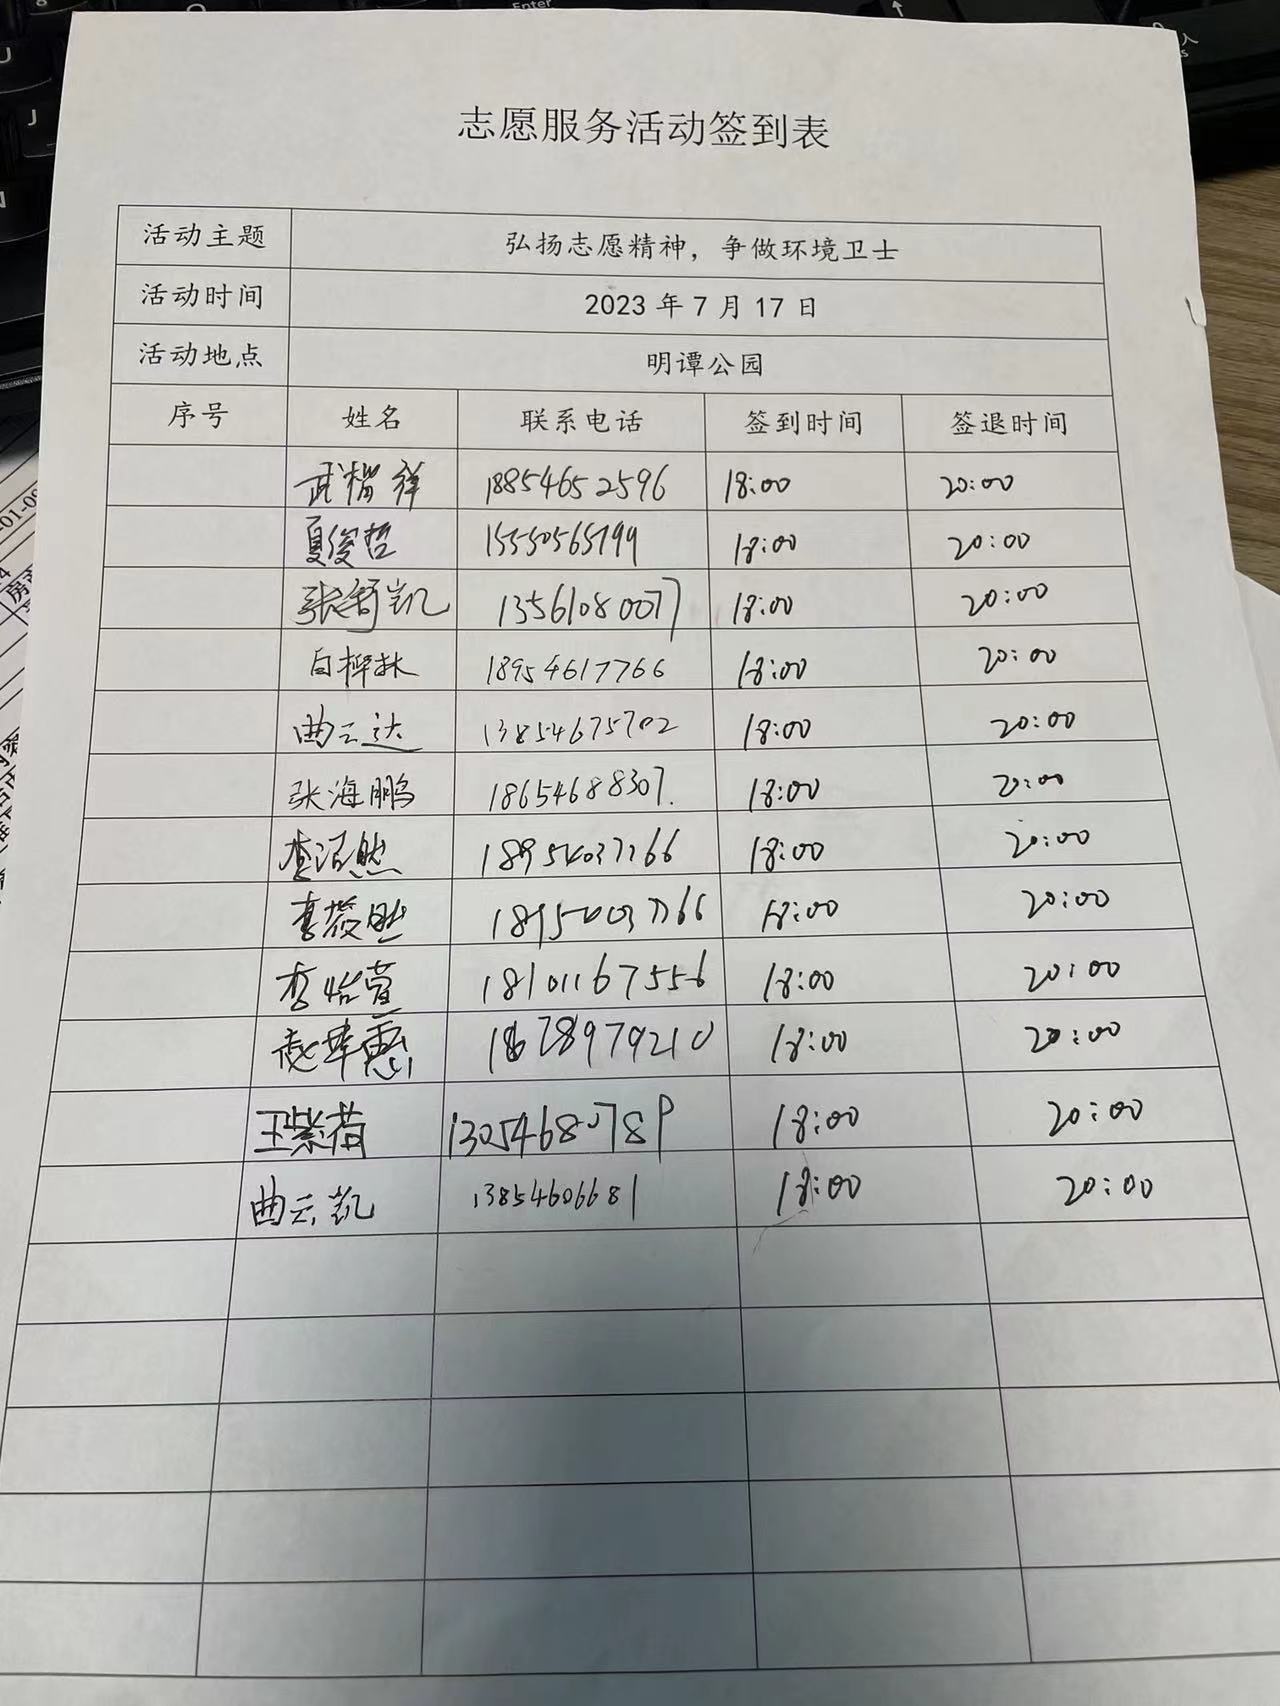 志愿服务活动签到表
活动主题 弘扬志愿精神，争做环境卫士
活动时间 2023 年 7 月 17 日
活动地点 明谭公园
序号 姓名 联系电话 签到时间 签退时间
武楷祥 18854652596 18:00 20:00
夏俊哲 15550565799 18:00 20:00
张舒凯 13561080077 18:00 20:00
白桦林 18954617766 18:00 20:00
曲云达 13854675702 18:00 20:00
张海鹏 18654688307. 18:00 20:00
18954037766 18:00 20:00
18954037766 18:00 20:00
李怡萱 18101167556 18:00 20:00
18678979210 18:00 20:00
王紫荷 13054680789 18:00 20:00
曲云凯 13854606681 18:00 20:00
Enter
J